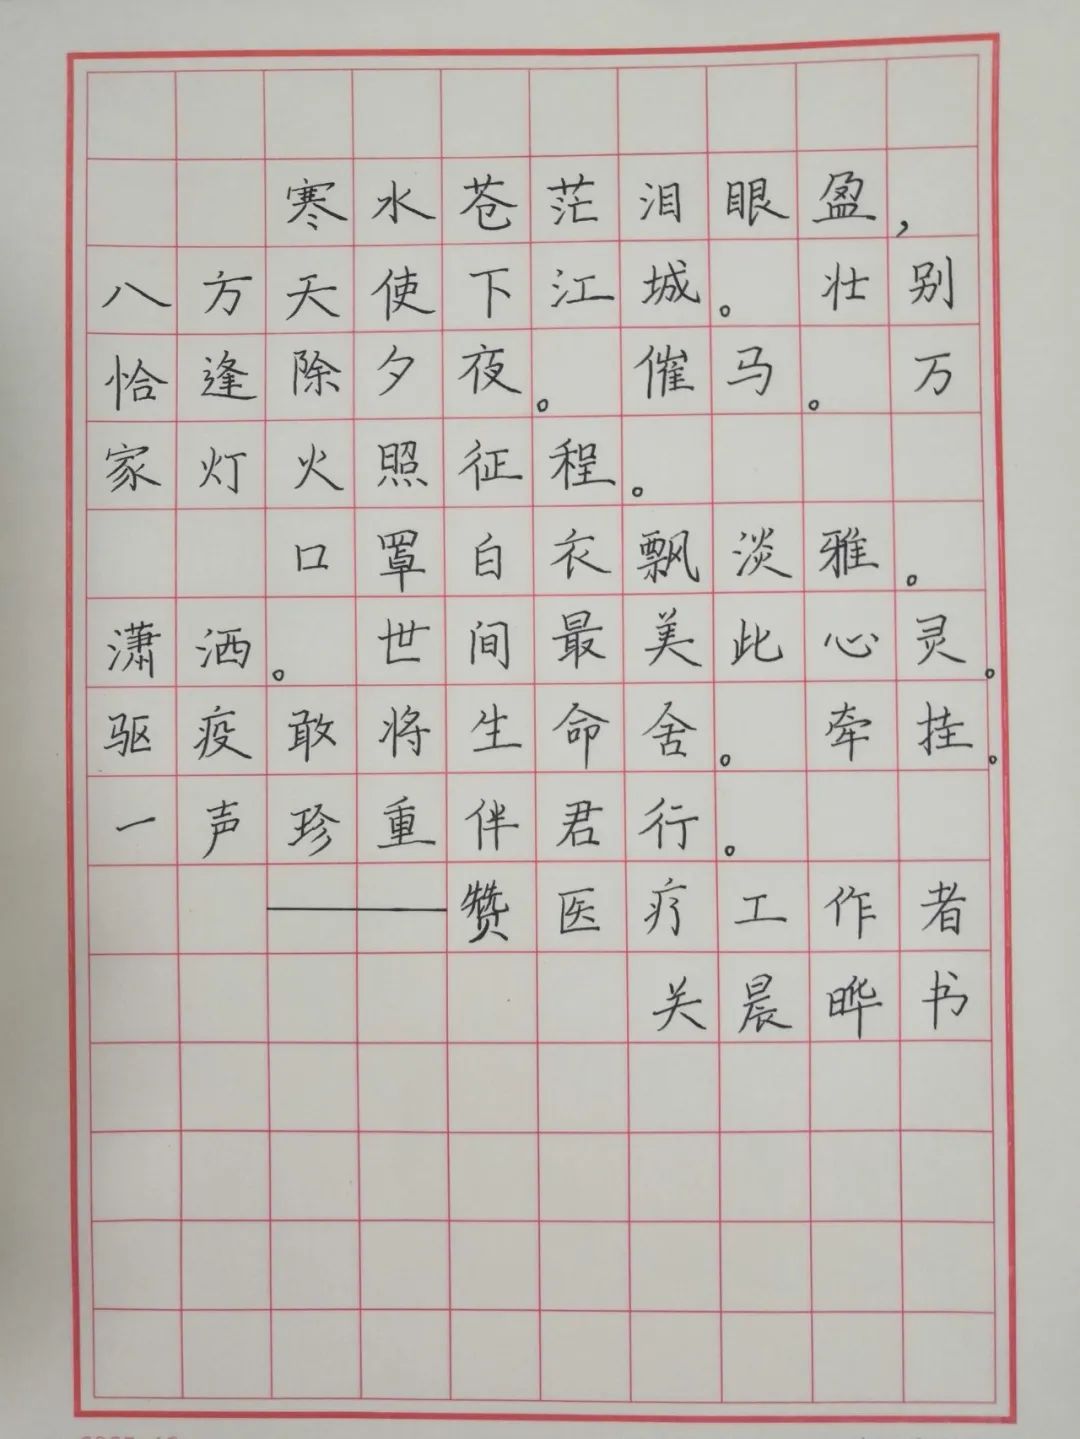 寒水苍茫泪眼盈，
八方天使下江城。壮别
恰逢除夕夜。催马。万
家灯火照征程。
口罩白衣飘淡雅。
潇洒。世间最美此心灵。
驱疫敢将生命舍。牵挂。
一声珍重伴君行。
——赞医疗工作者
关晨晔书